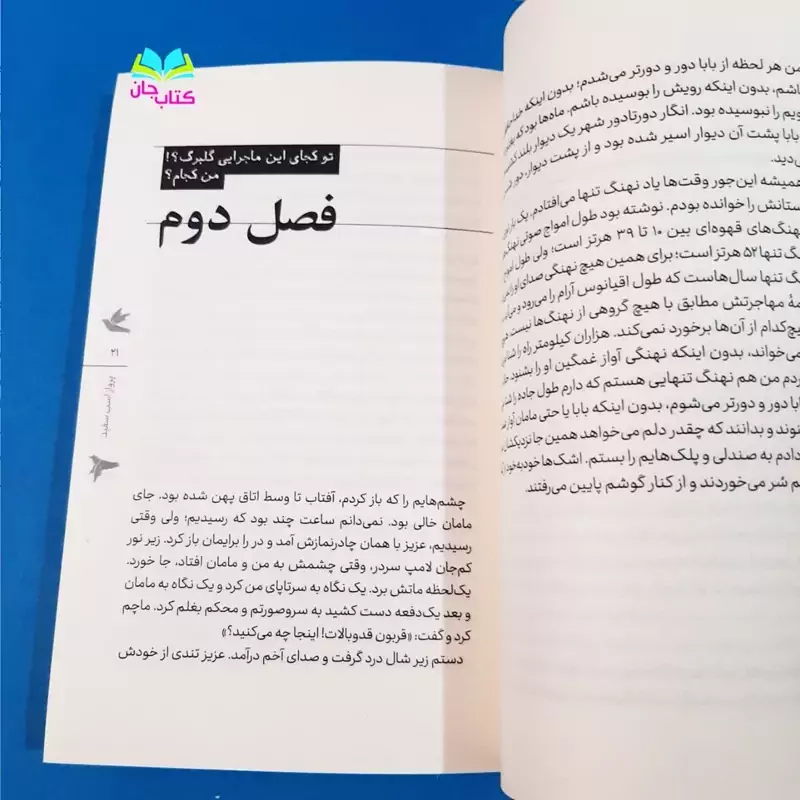 کتاب جان
من هر لحظه از بابا دور و دورتر می‌شدم؛ بدون اینکه
باشم، بدون اینکه رویش را بوسیده باشم. ماه‌ها بود که
ویم را نبوسیده بود. انگار دورتادور شهر یک دیوار بلند
بابا پشت آن دیوار اسیر شده بود و از پشت دیوار، دور
می‌دید.
همیشه این‌جور وقت‌ها یاد نهنگ تنها می‌افتادم. یک بار
ستانش را خوانده بودم. نوشته بود طول امواج صوتی
نهنگ‌های قهوه‌ای بین ۱۰ تا ۳۹ هرتز است؛ ولی طول
نگ تنها ۵۲ هرتز است؛ برای همین هیچ نهنگی صدای او را
گ تنها سال‌هاست که طول اقیانوس آرام را می‌رود و
مهٔ مهاجرتش مطابق با هیچ گروهی از نهنگ‌ها نیست
یچ‌کدام از آن‌ها برخورد نمی‌کند. هزاران کیلومتر راه را
می‌خواند، بدون اینکه نهنگی آواز غمگین او را بشنود.
ردم من هم نهنگ تنهایی هستم که دارم طول جاده را
ابا دور و دورتر می‌شوم، بدون اینکه بابا یا حتی مامان
نوند و بدانند که چقدر دلم می‌خواهد همین جا
دادم به صندلی و پلک‌هایم را بستم. اشک‌ها خودبه‌خود
م سُر می‌خوردند و از کنار گوشم پایین می‌رفتند.
تو کجای این ماجرایی گلبرگ؟!
من کجام؟
فصل دوم
۲۱
پرواز اسب سفید
چشم‌هایم را که باز کردم، آفتاب تا وسط اتاق پهن شده بود. جای
مامان خالی بود. نمی‌دانم ساعت چند بود که رسیدیم؛ ولی وقتی
رسیدیم، عزیز با همان چادرنمازش آمد و در را برایمان باز کرد. زیر نور
کم‌جان لامپ سردر، وقتی چشمش به من و مامان افتاد، جا خورد.
یک‌لحظه ماتش برد. یک نگاه به سرتاپای من کرد و یک نگاه به مامان
و بعد یک‌دفعه دست کشید به سروصورتم و محکم بغلم کرد. ماچم
کرد و گفت: «قربون قدوبالات! اینجا چه می‌کنید؟»
دستم زیر شال درد گرفت و صدای آخم درآمد. عزیز تندی از خودش